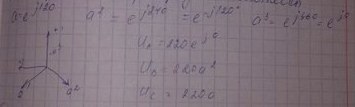 a=e^j120 a² = e^j240 = e^-j120° a³ = e^j360 = e^j0
U_A = 220e^j0
U_B = 220a²
U_C = 220a
1
a²